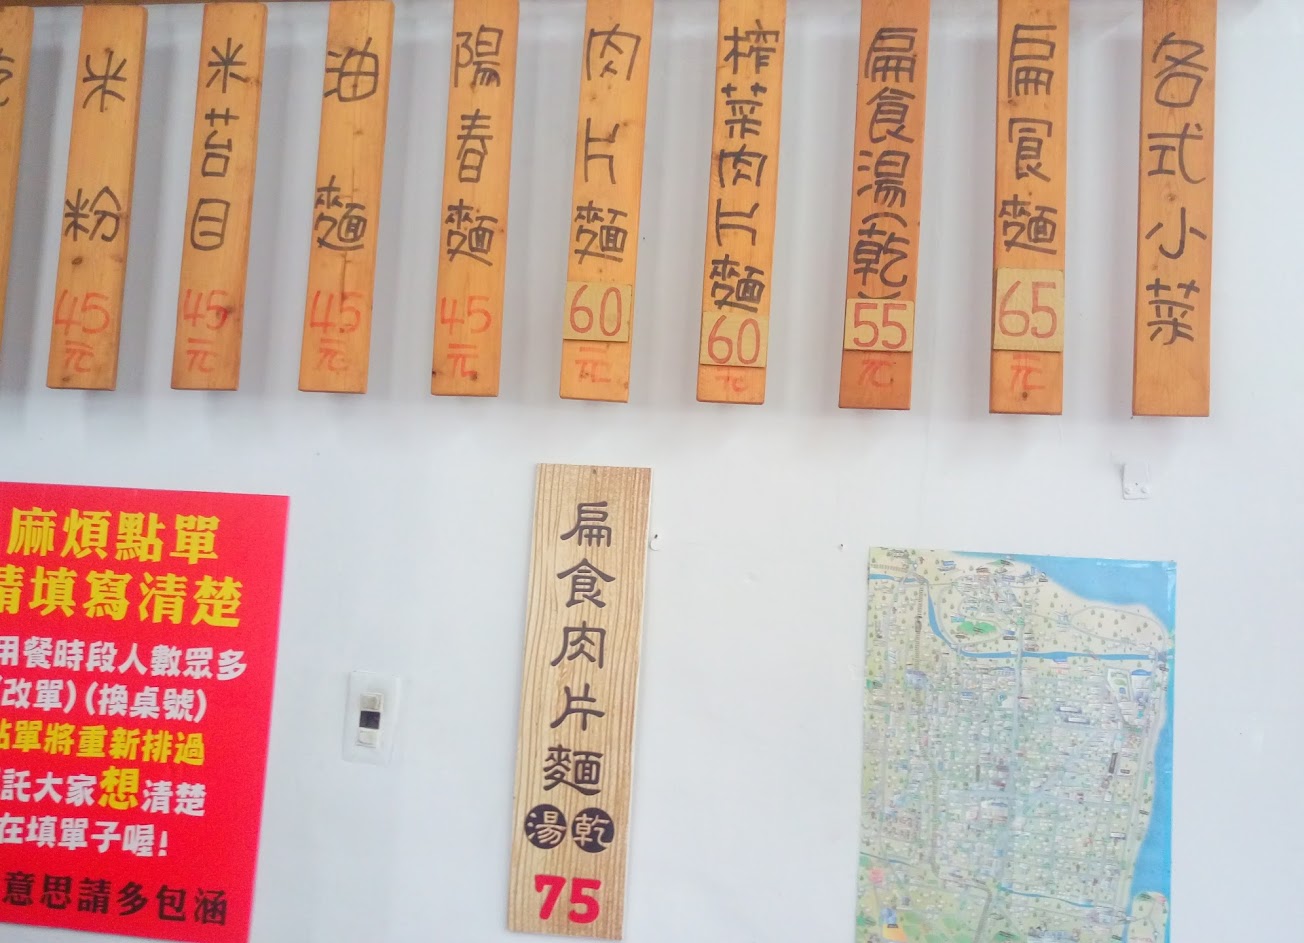 各式小菜
扁食麵
65
元
扁食湯(乾)
55
元
榨菜肉片麵
60
元
肉片麵
60
元
陽春麵
45
元
油麵
45
元
米苔目
45
元
米粉
45
元
扁食肉片麵
湯乾
75
麻煩點單
請填寫清楚
用餐時段人數眾多
(改單)(換桌號)
點單將重新排過
託大家想清楚
在填單子喔!
意思請多包涵